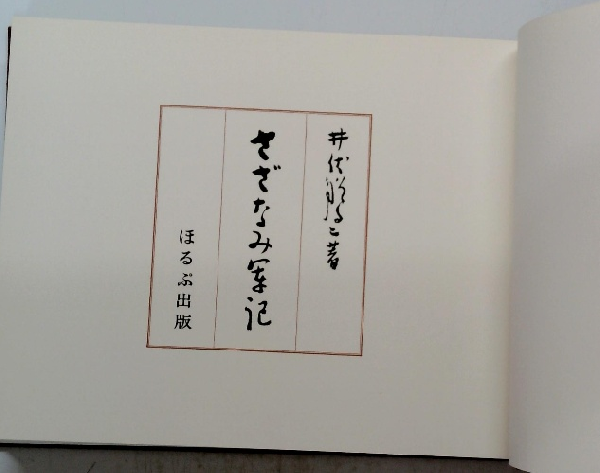 井伏鱒二著
さざなみ軍記
ほるぷ出版